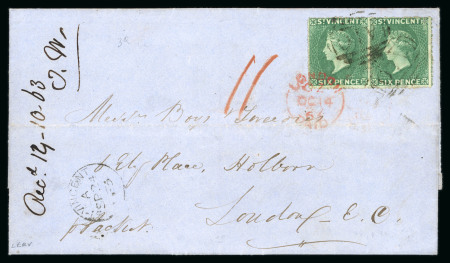 ST VINCENT ST VINCENT
SIX PENCE SIX PENCE
Recd 14-10-63
J. W.
11
LONDON
OC 14
Messrs Boys
Ely Place, Holborn
London E.C.
p Packet
VINCENT
A